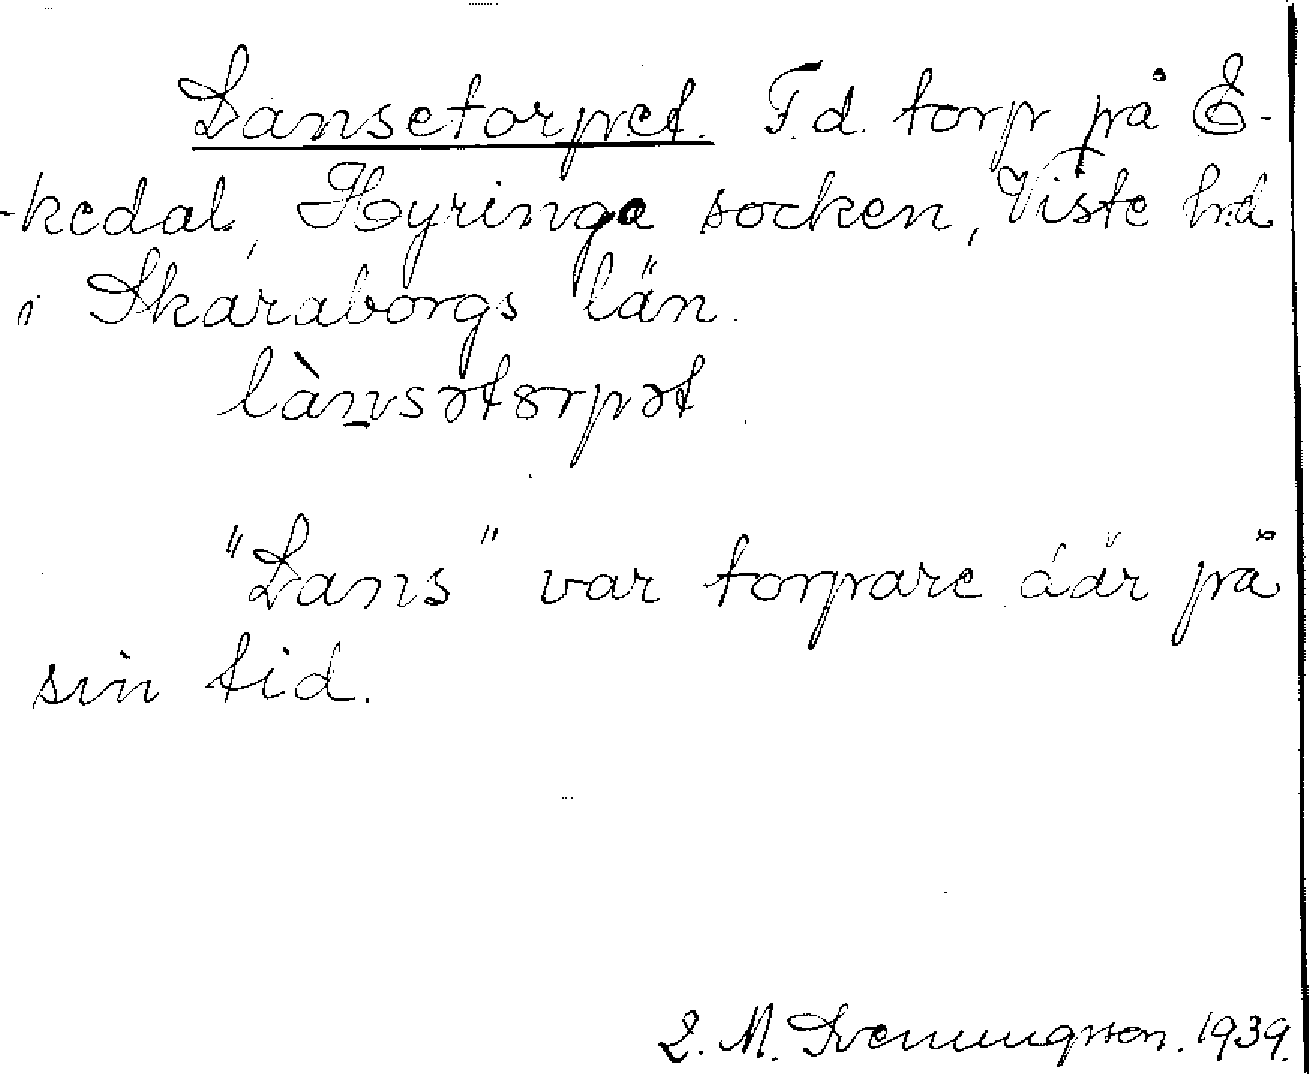 Lansetorpet. F.d. torp på E-
-kedal, Hyringa socken, Viste hd
i Skaraborgs län.
lànsətorpət
"Lans" var torpare där på
sin tid.
L. M. Svenungsson. 1939.